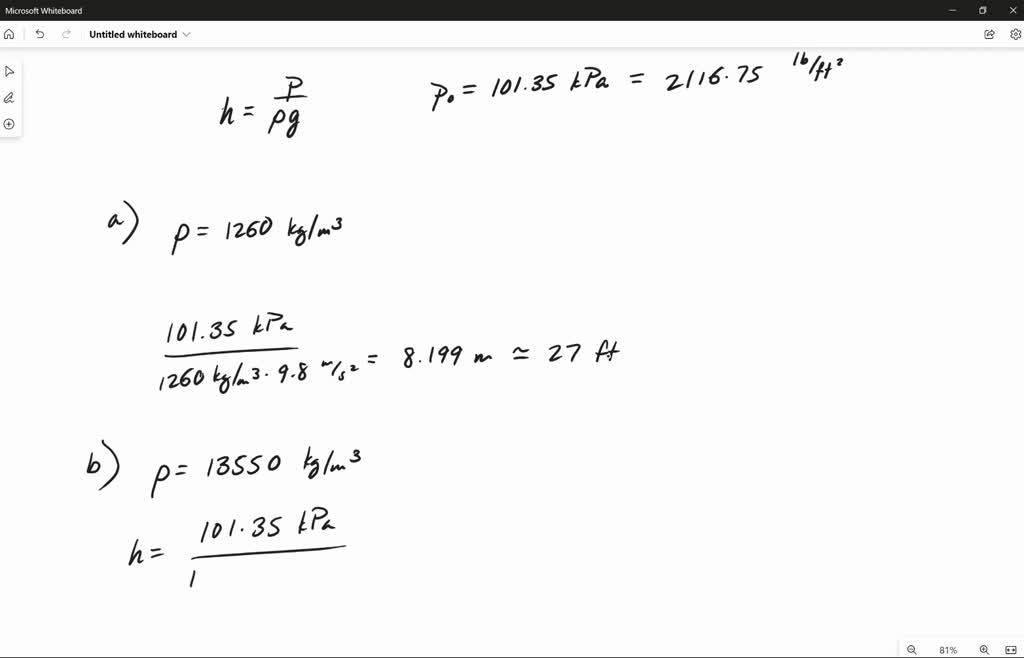 Microsoft Whiteboard
Untitled whiteboard
h = P / ρg
P₀ = 101.35 kPa = 2116.75 lb/ft²
a) ρ = 1260 kg/m³
101.35 kPa / 1260 kg/m³ · 9.8 m/s² = 8.199 m ≃ 27 ft
b) ρ = 13550 kg/m³
h = 101.35 kPa / 1
81%